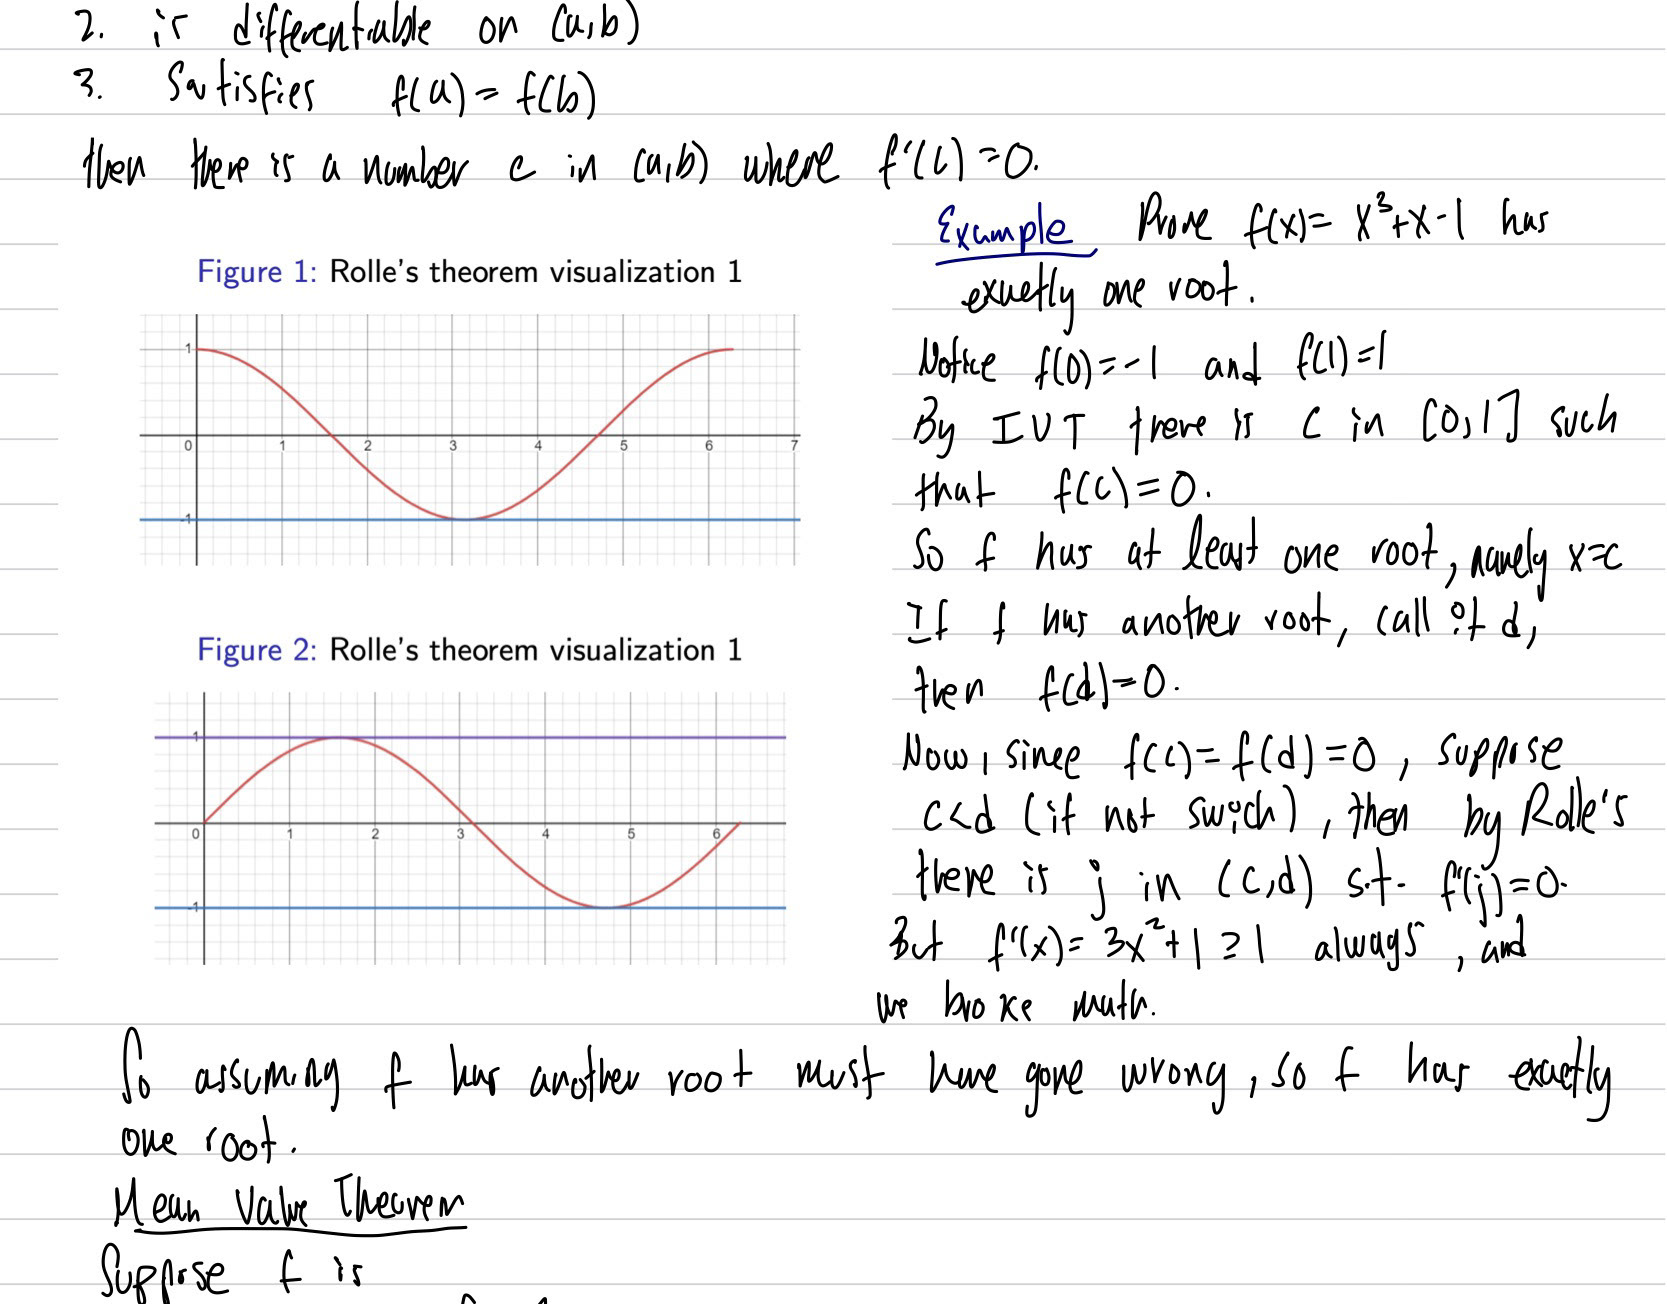 2. is differentiable on (a,b)
3. Satisfies f(a) = f(b)
then there is a number c in (a,b) where f'(c) = 0.
Figure 1: Rolle's theorem visualization 1
1
0 1 2 3 4 5 6 7
-1
Figure 2: Rolle's theorem visualization 1
1
0 1 2 3 4 5 6
-1
Example Prove f(x) = x³+x-1 has
exactly one root.
Notice f(0)=-1 and f(1)=1
By IVT there is c in [0,1] such
that f(c)=0.
So f has at least one root, namely x=c
If f has another root, call it d,
then f(d)=0.
Now, since f(c)=f(d)=0, suppose
c<d (if not swich), then by Rolle's
there is j in (c,d) s.t. f'(j)=0.
But f'(x)= 3x²+1 ≥ 1 always, and
we broke math.
So assuming f has another root must have gone wrong, so f has exactly
one root.
Mean Value Theorem
Suppose f is